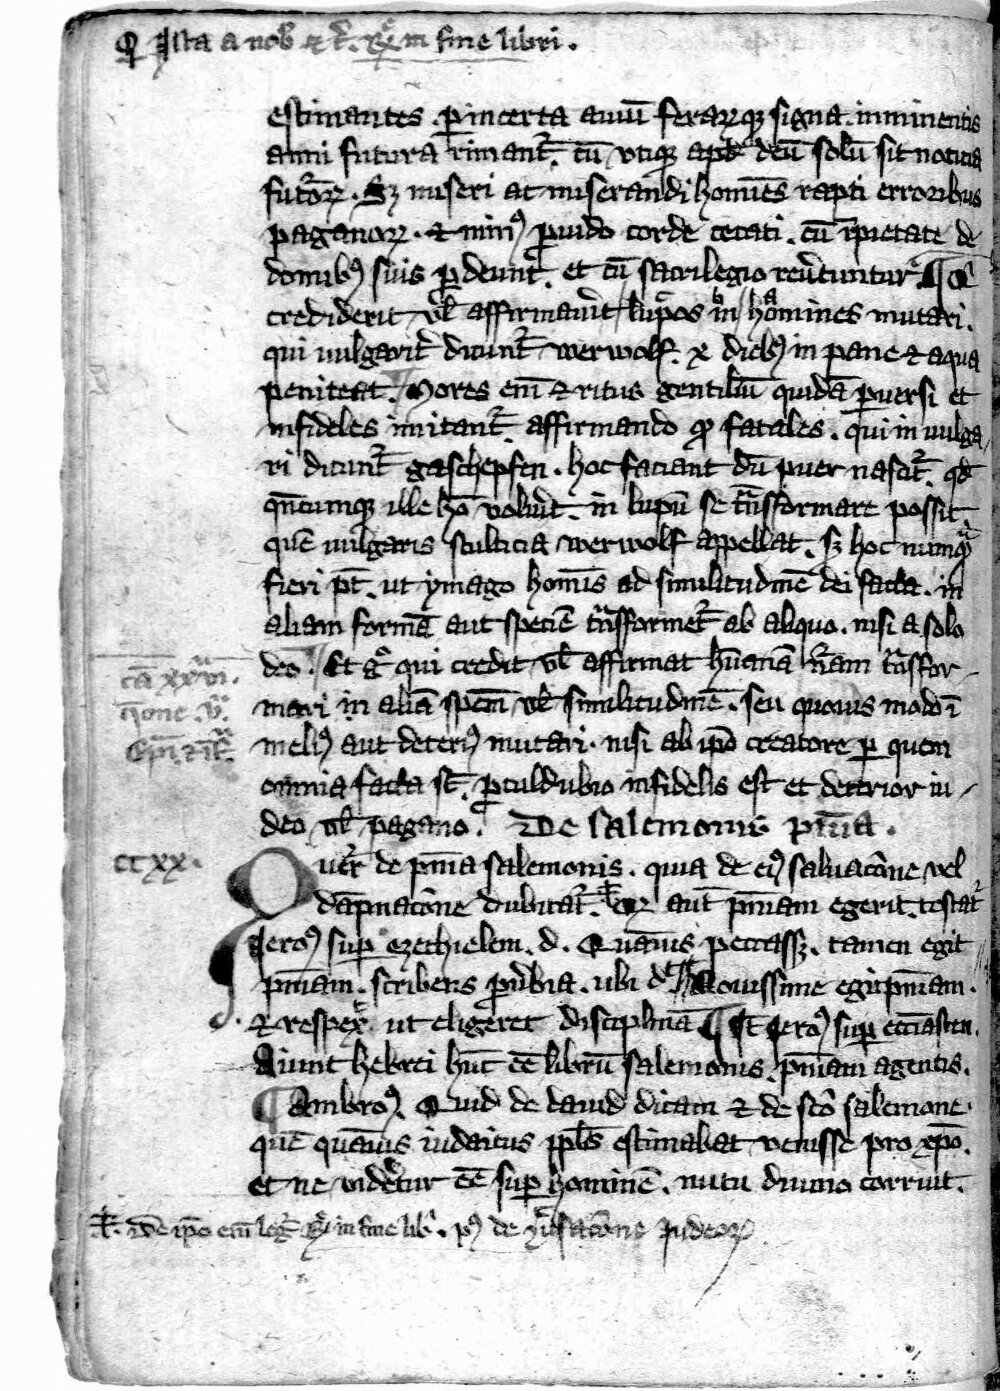 Ista a nob̄ in fine libri.
estimantes . ꝑ incerta auiū ferarꝫ signa . inminentis
anni futura rimant᷑ . cū vtiqꝫ apd̄ deū solū sit noticia
futoꝝ . Sꝫ miseri ac miserandi homīes rapti erroribus
paganoꝝ . et corde cecati . cū īpietate de
domibꝰ suis ꝑdeunt᷑ . et cū sacrilegio reūtuntur . ¶ Qͥ
crediderit vl̄ affirmauit̄ / lupos in / homines mutari .
qui uulgarit᷑ dicunt᷑ werwolf . x diebꝰ in pane et aqua
peniteat . Mores em̄ et ritus gentiliū quidā ꝑuersi et
infideles imitant᷑ . affirmando ꝙ fatales . qui in uulga/
ri dicunt᷑ gaschepfen . hoc faciant dū puer nascit᷑ . qd̄
qn̄cumqꝫ ille hō voluit̄ . in lupū se trᷓsformare possit .
quē uulgaris stulticia werwolf appellat . sꝫ hoc numqᷓ
fieri pt̄ . ut ymago homīs ad similitudinē dei facta . in
aliam formā aut speciē trᷓsformet᷑ ab aliquo . nisi a solo
deo . Et gͦ qui credit vl̄ affirmat hūanā n̄am trᷓsfor-
mari in aliā spēm vl̄ similitudinē . seu quouis modo ī
meliꝰ aut deteriꝰ mutari . nisi ab ip̄o creatore ꝑ quem
omnia facta st̄ . ꝓculdubio infidelis est et deterior iu/
deo vl̄ pagano . De salemonis pīnia .
ccxx .
Querit᷑ de pīnia salemonis . quia de eiꝰ saluacōne vel
dāpnacōne dubitat᷑ . aut̄ pīniam egerit . testat᷑
Ieroꝰ suꝑ ezechielem . d . Quāuis peccassꝫ . tamen egit
pīniam . scribens ꝓuerbia . ubi dͭ Nouissime egi pīniam .
et respexi ut eligeret disciplinā ¶ It̄ Ieroꝰ suꝑ eccīasten .
Aiunt hebrei hūc ēe librū salemonis . pīniam agentis .
¶ Ambroꝰ . Quid de dauid dicam et de scō salemone
quē quāuis iudaicus ppl̄s estimabat venisse pro xp̄o .
et ne viderētur ēe suꝑ hominē . nutu diuino corruit .
De ip̄o eciā in fine lib̄ . de Iudeoꝝ